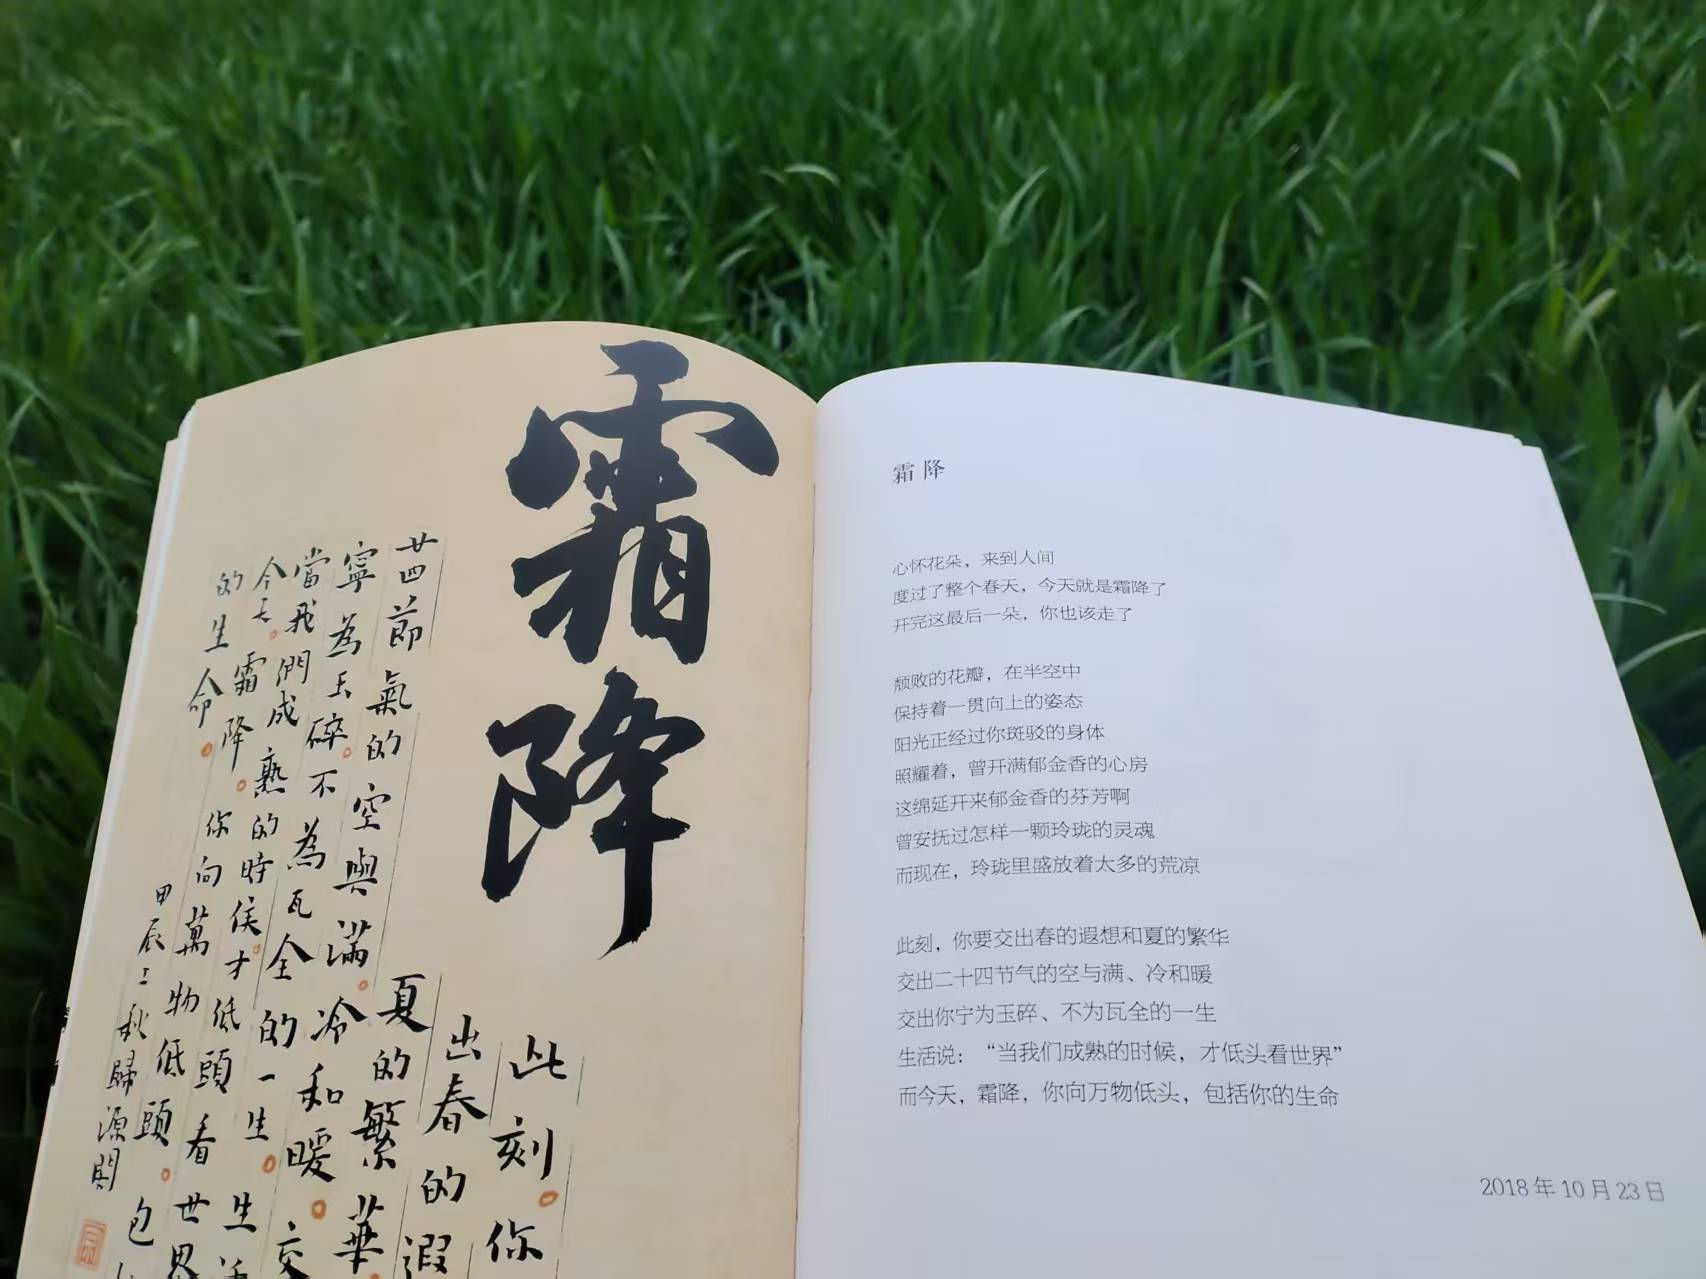 霜降
此刻。你
出春的遐
夏的繁華
廿四節氣的空與滿。冷和暖。交
寧為玉碎。不為瓦全的一生。生活
當我們成熟的時侯。才低頭看世界
今天。霜降。你向萬物低頭。包
的生命。
甲辰秋歸源閣
霜降
心怀花朵，来到人间
度过了整个春天，今天就是霜降了
开完这最后一朵，你也该走了
颓败的花瓣，在半空中
保持着一贯向上的姿态
阳光正经过你斑驳的身体
照耀着，曾开满郁金香的心房
这绵延开来郁金香的芬芳啊
曾安抚过怎样一颗玲珑的灵魂
而现在，玲珑里盛放着太多的荒凉
此刻，你要交出春的遐想和夏的繁华
交出二十四节气的空与满、冷和暖
交出你宁为玉碎、不为瓦全的一生
生活说：“当我们成熟的时候，才低头看世界”
而今天，霜降，你向万物低头，包括你的生命
2018年10月23日